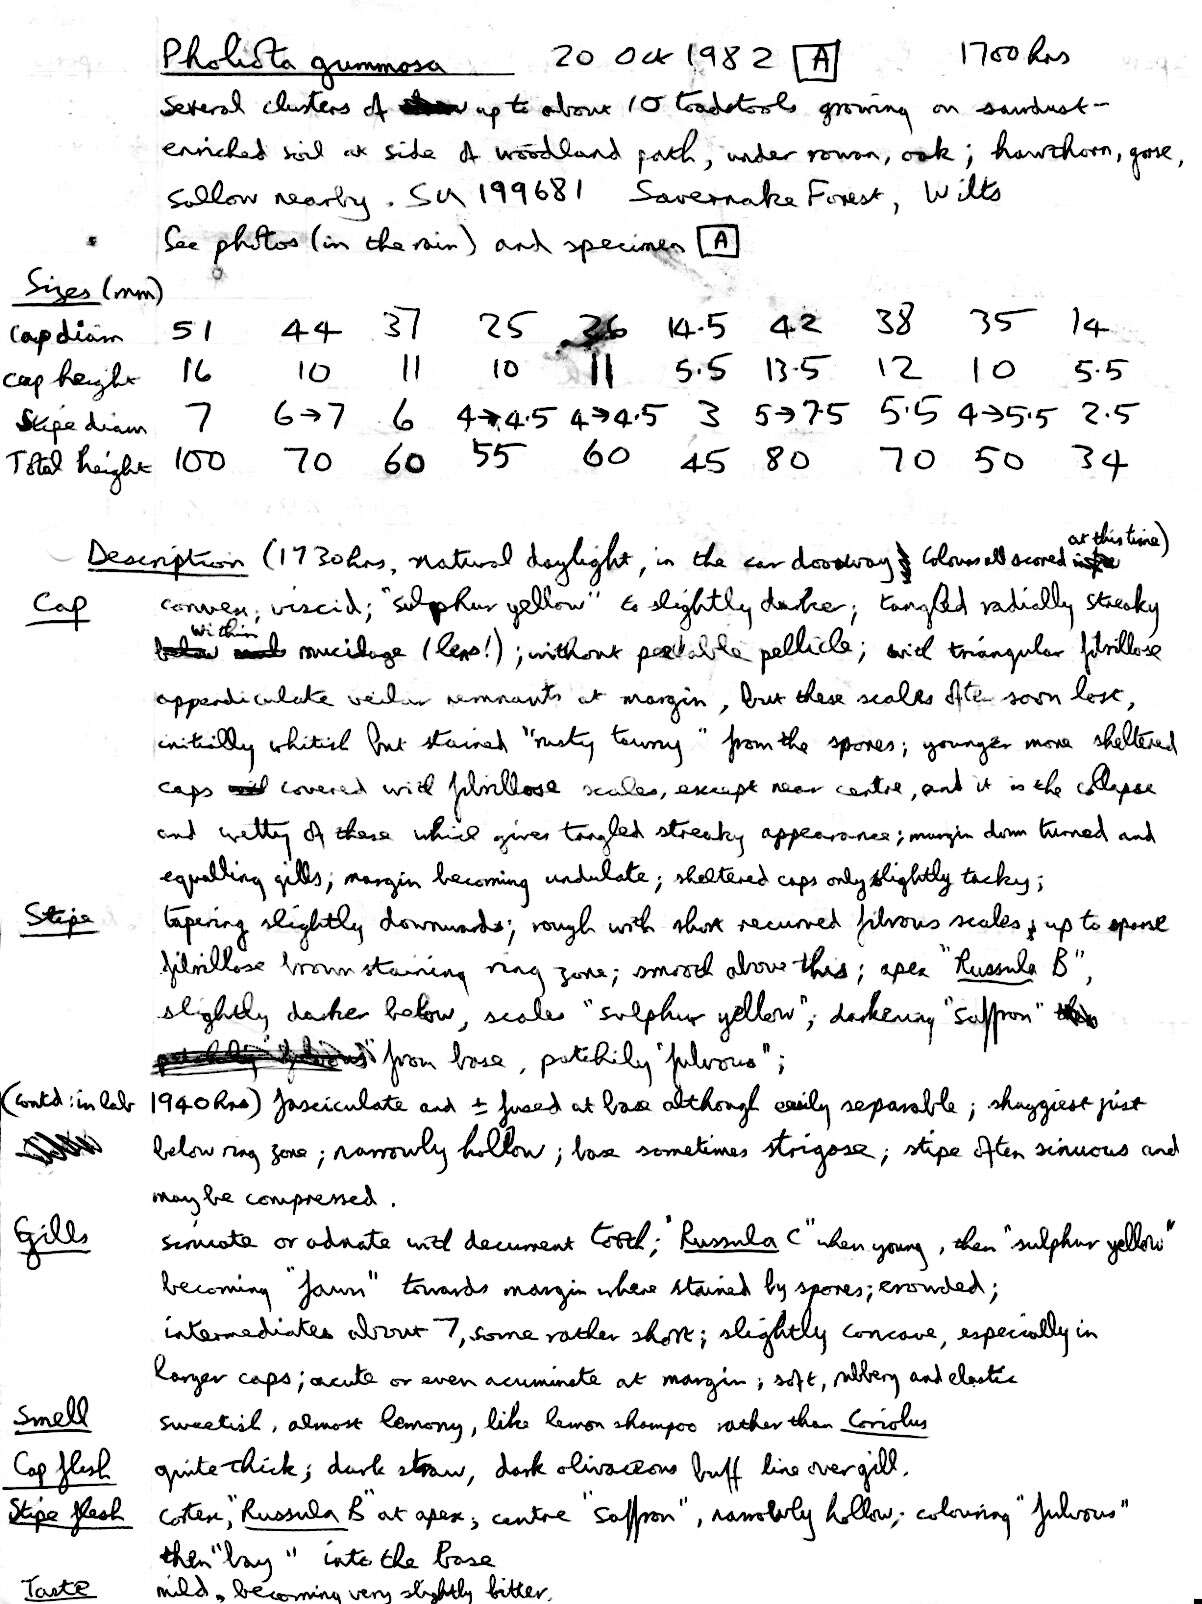 Pholiota gummosa 20 Oct 1982 A 1700 hrs
Several clusters of up to about 10 toadstools growing on sawdust-
enriched soil at side of woodland path, under rowan, oak; hawthorn, gorse,
sallow nearby. SU 199681 Savernake Forest, Wilts
See photos (in the rain) and specimen A
Sizes (mm)
Cap diam 51 44 37 25 26 14.5 42 38 35 14
Cap height 16 10 11 10 11 5.5 13.5 12 10 5.5
Stipe diam 7 6→7 6 4→4.5 4→4.5 3 5→7.5 5.5 4→5.5 2.5
Total height 100 70 60 55 60 45 80 70 50 34
at this time)
Description (1730 hrs, natural daylight, in the car doorway; colours all scored
Cap convex; viscid; "sulphur yellow" to slightly darker; tangled radially streaky
within mucilage (lens!); without peelable pellicle; with triangular fibrillose
appendiculate velar remnants at margin, but these scales often soon lost,
initially whitish but stained "rusty tawny" from the spores; younger more sheltered
caps covered with fibrillose scales, except near centre, and it is the collapse
and wetting of these which gives tangled streaky appearance; margin down turned and
equalling gills; margin becoming undulate; sheltered caps only slightly tacky;
Stipe tapering slightly downwards; rough with short recurved fibrous scales, up to sparse
fibrillose brown staining ring zone; smooth above this; apex "Russula B",
slightly darker below, scales "sulphur yellow"; darkening "saffron"
from base, patchily "fulvous";
(contd: in lab 1940 hrs) fasciculate and ± fused at base although easily separable; shaggiest just
below ring zone; narrowly hollow; base sometimes strigose; stipe often sinuous and
may be compressed.
Gills sinuate or adnate with decurrent tooth; "Russula C" when young, then "sulphur yellow"
becoming "fawn" towards margin where stained by spores; crowded;
intermediates about 7, some rather short; slightly concave, especially in
larger caps; acute or even acuminate at margin; soft, rubbery and elastic
Smell sweetish, almost lemony, like lemon shampoo rather than Coriolus
Cap flesh quite thick; dark straw, dark olivaceous buff line over gill.
Stipe flesh cortex, "Russula B" at apex; centre "saffron", narrowly hollow; colouring "fulvous"
then "bay" into the base
Taste mild, becoming very slightly bitter.